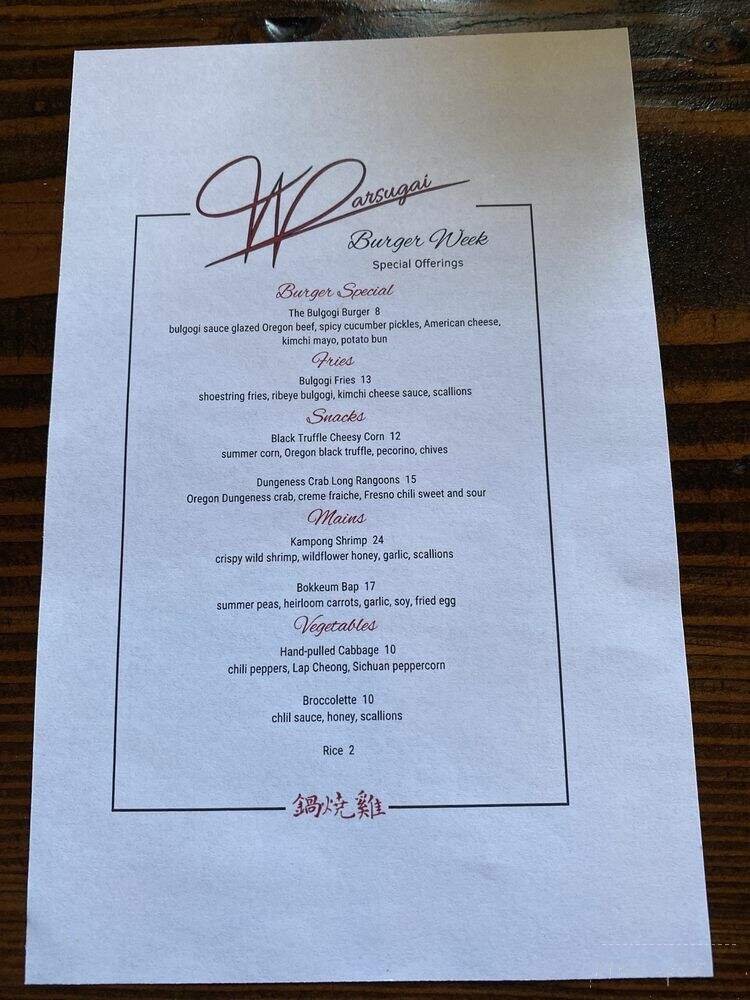 W Parsugai
Burger Week
Special Offerings
Burger Special
The Bulgogi Burger 8
bulgogi sauce glazed Oregon beef, spicy cucumber pickles, American cheese,
kimchi mayo, potato bun
Fries
Bulgogi Fries 13
shoestring fries, ribeye bulgogi, kimchi cheese sauce, scallions
Snacks
Black Truffle Cheesy Corn 12
summer corn, Oregon black truffle, pecorino, chives
Dungeness Crab Long Rangoons 15
Oregon Dungeness crab, creme fraiche, Fresno chili sweet and sour
Mains
Kampong Shrimp 24
crispy wild shrimp, wildflower honey, garlic, scallions
Bokkeum Bap 17
summer peas, heirloom carrots, garlic, soy, fried egg
Vegetables
Hand-pulled Cabbage 10
chili peppers, Lap Cheong, Sichuan peppercorn
Broccolette 10
chlil sauce, honey, scallions
Rice 2
鍋燒雞